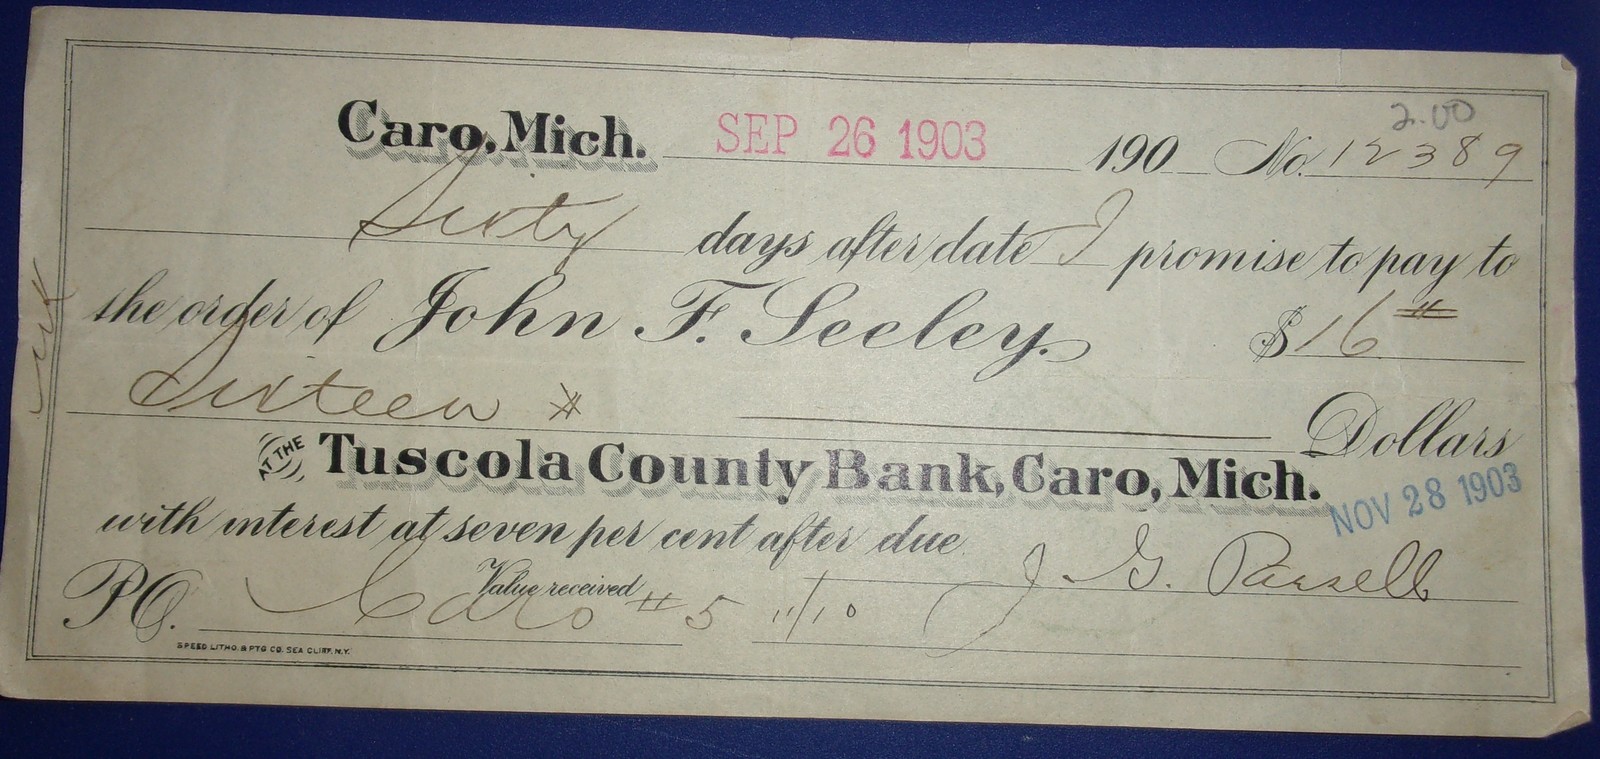 2.00
Caro, Mich. SEP 26 1903 190 No. 12389
Sixty days after date I promise to pay to
the order of John F. Seeley. $16
Sixteen Dollars
AT THE Tuscola County Bank, Caro, Mich.
NOV 28 1903
with interest at seven per cent after due
Value received J. G. Russell
P.O. Caro #5 11/10
SPEED LITHO. & PTG CO. SEA CLIFF, N.Y.